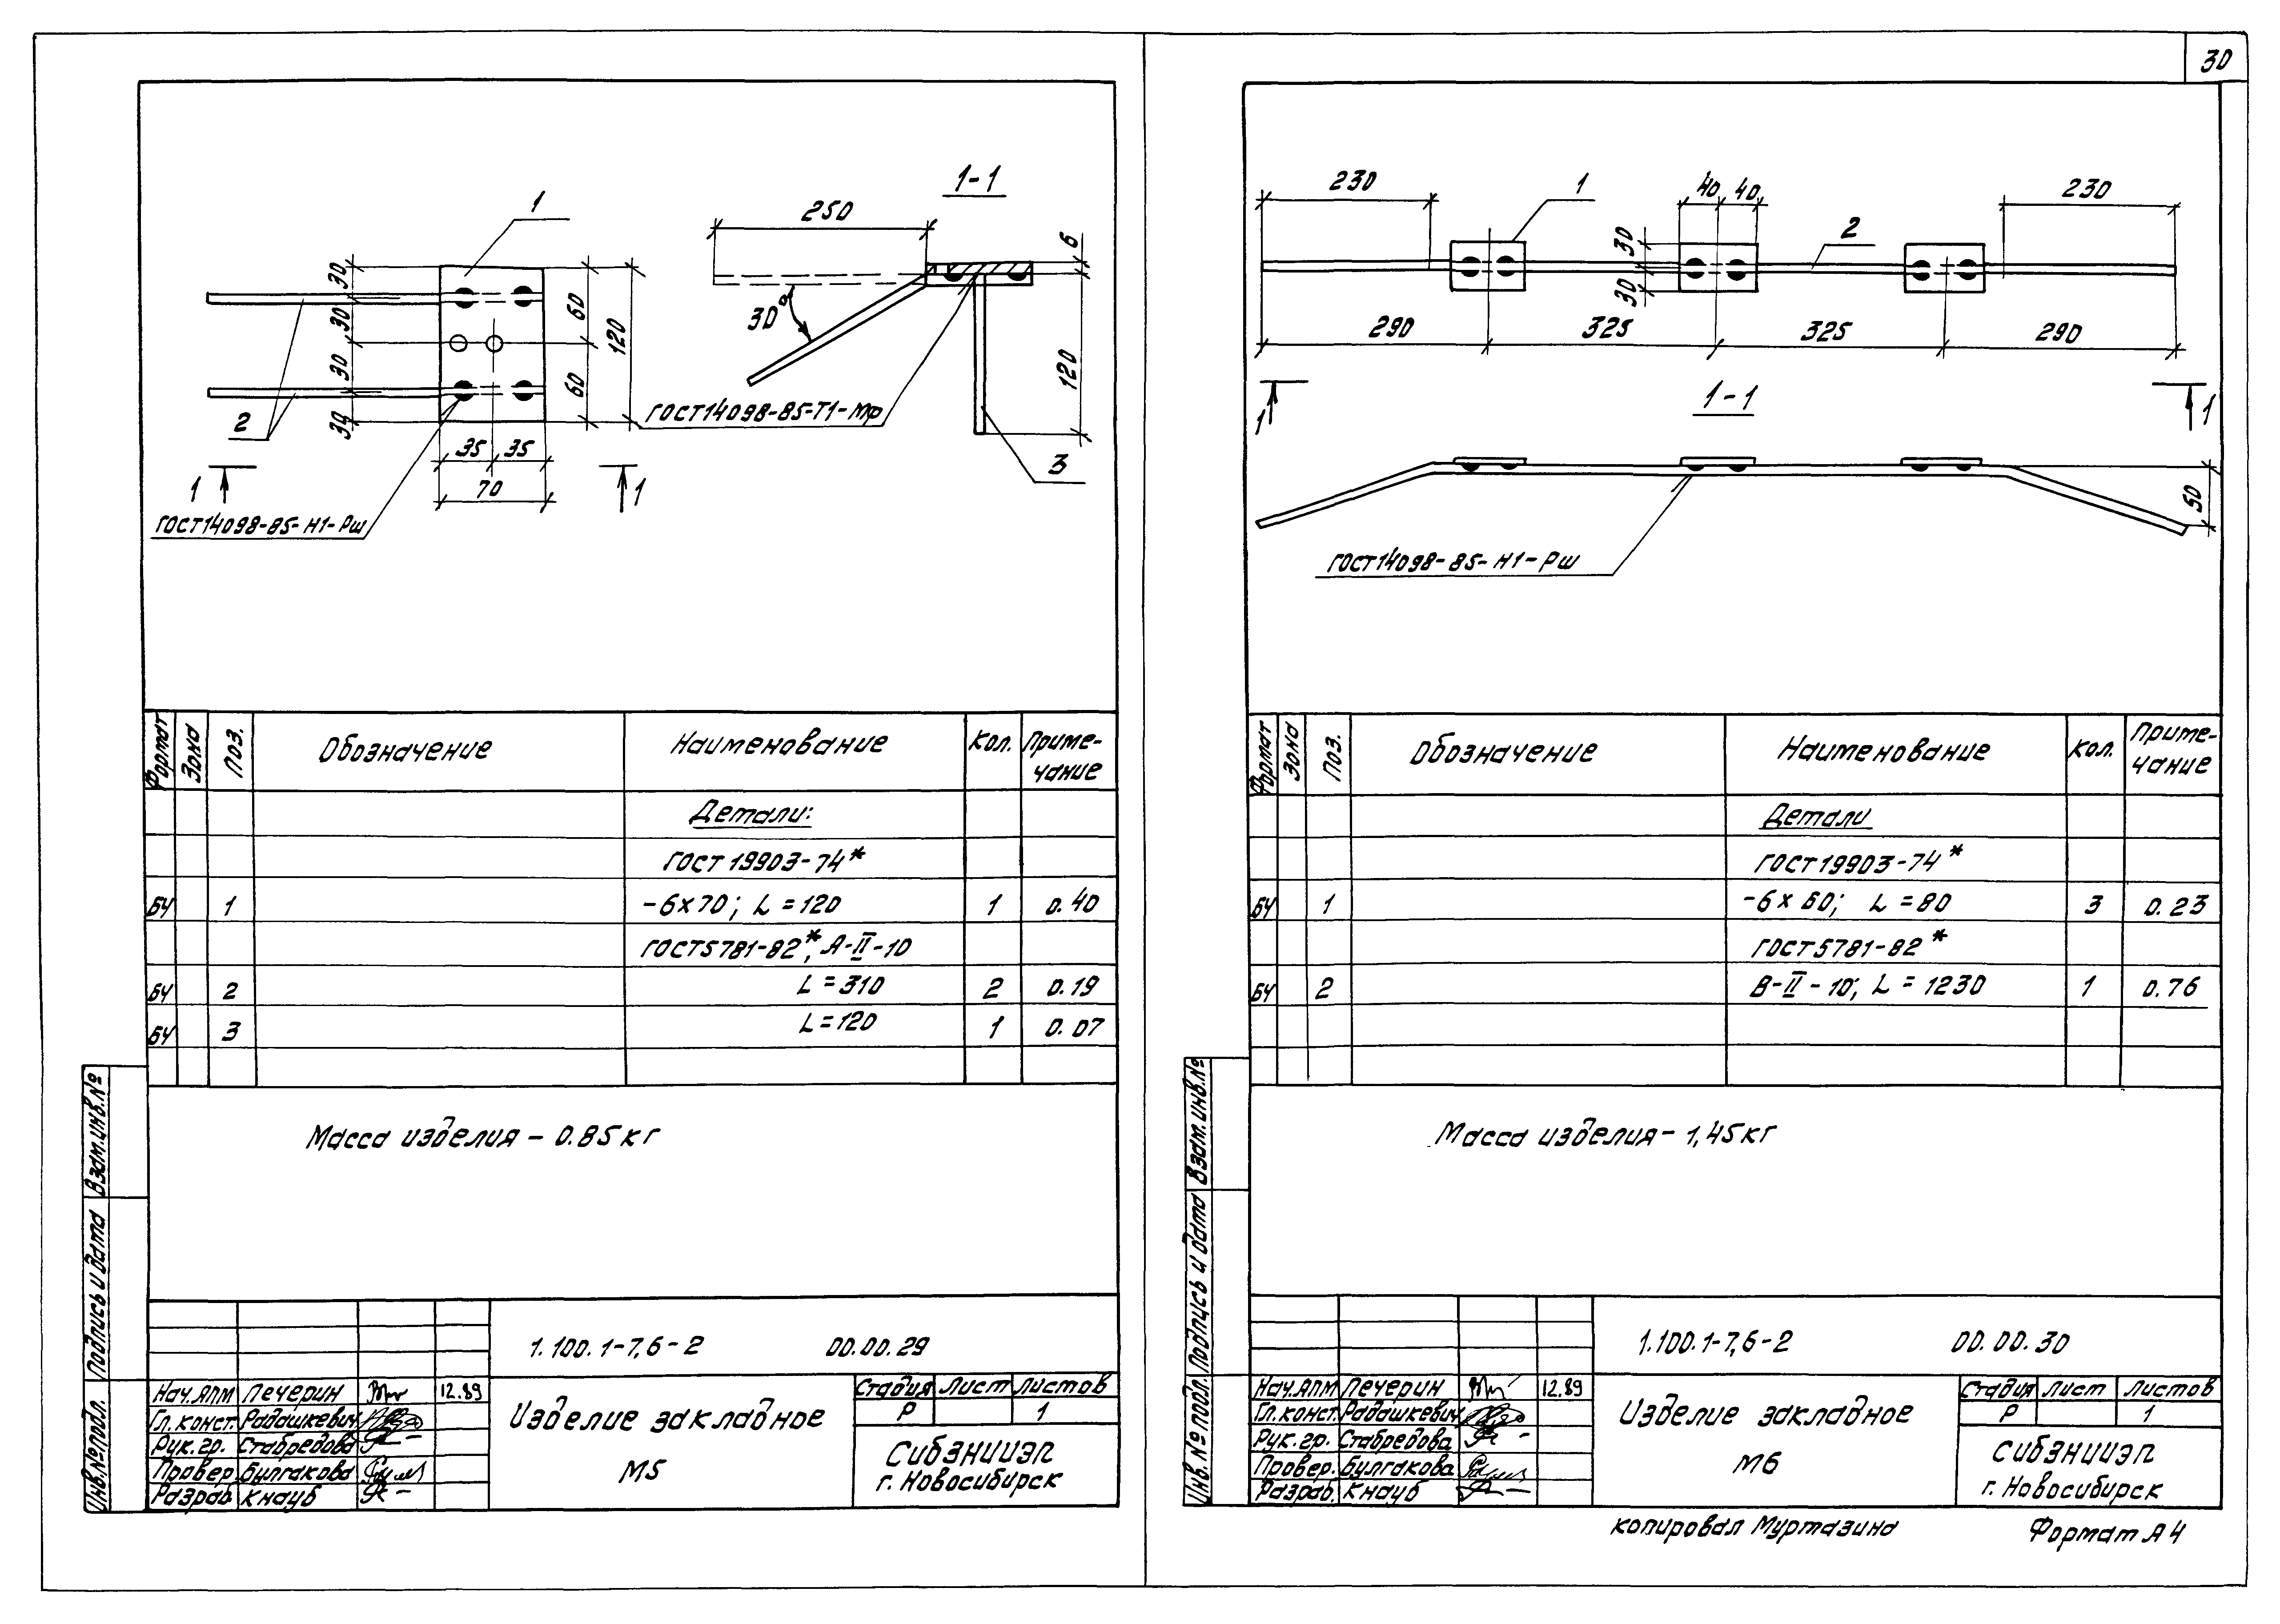 30
1
1-1
250
6
30
30
30
30
60
60
120
30°
120
2
35 35
70
3
1 1
ГОСТ14098-85-Т1-Мр
ГОСТ14098-85-Н1-Рш
Формат
Зона
Поз.
Обозначение
Наименование
Кол.
Приме-
чание
Детали:
ГОСТ 19903-74*
БЧ 1 -6×70; L=120 1 0.40
ГОСТ5781-82*, А-II-10
БЧ 2 L=310 2 0.19
БЧ 3 L=120 1 0.07
Масса изделия - 0.85кг
Взам.инв.№
Подпись и дата
Инв.№подл.
1.100.1-7,6-2 00.00.29
Нач.АПМ Печерин 12.89
Гл.конст. Радашкевич
Рук.гр. Стабредова
Провер. Булгакова
Разраб. Кнауб
Изделие закладное
М5
Стадия Лист Листов
Р 1
СибЗНИИЭП
г. Новосибирск
230
1
40 40
2
230
30
30
290 325 325 290
1 1
1-1
50
ГОСТ14098-85-Н1-Рш
Формат
Зона
Поз.
Обозначение
Наименование
Кол.
Приме-
чание
Детали
ГОСТ19903-74*
БЧ 1 -6×60; L=80 3 0.23
ГОСТ5781-82*
БЧ 2 В-II-10; L=1230 1 0.76
Масса изделия - 1,45кг
Взам.инв.№
Подпись и дата
Инв.№подл.
1.100.1-7,6-2 00.00.30
Нач.АПМ Печерин 12.89
Гл.конст. Радашкевич
Рук.гр. Стабредова
Провер. Булгакова
Разраб. Кнауб
Изделие закладное
М6
Стадия Лист Листов
Р 1
СибЗНИИЭП
г. Новосибирск
копировал Муртазина Формат А4